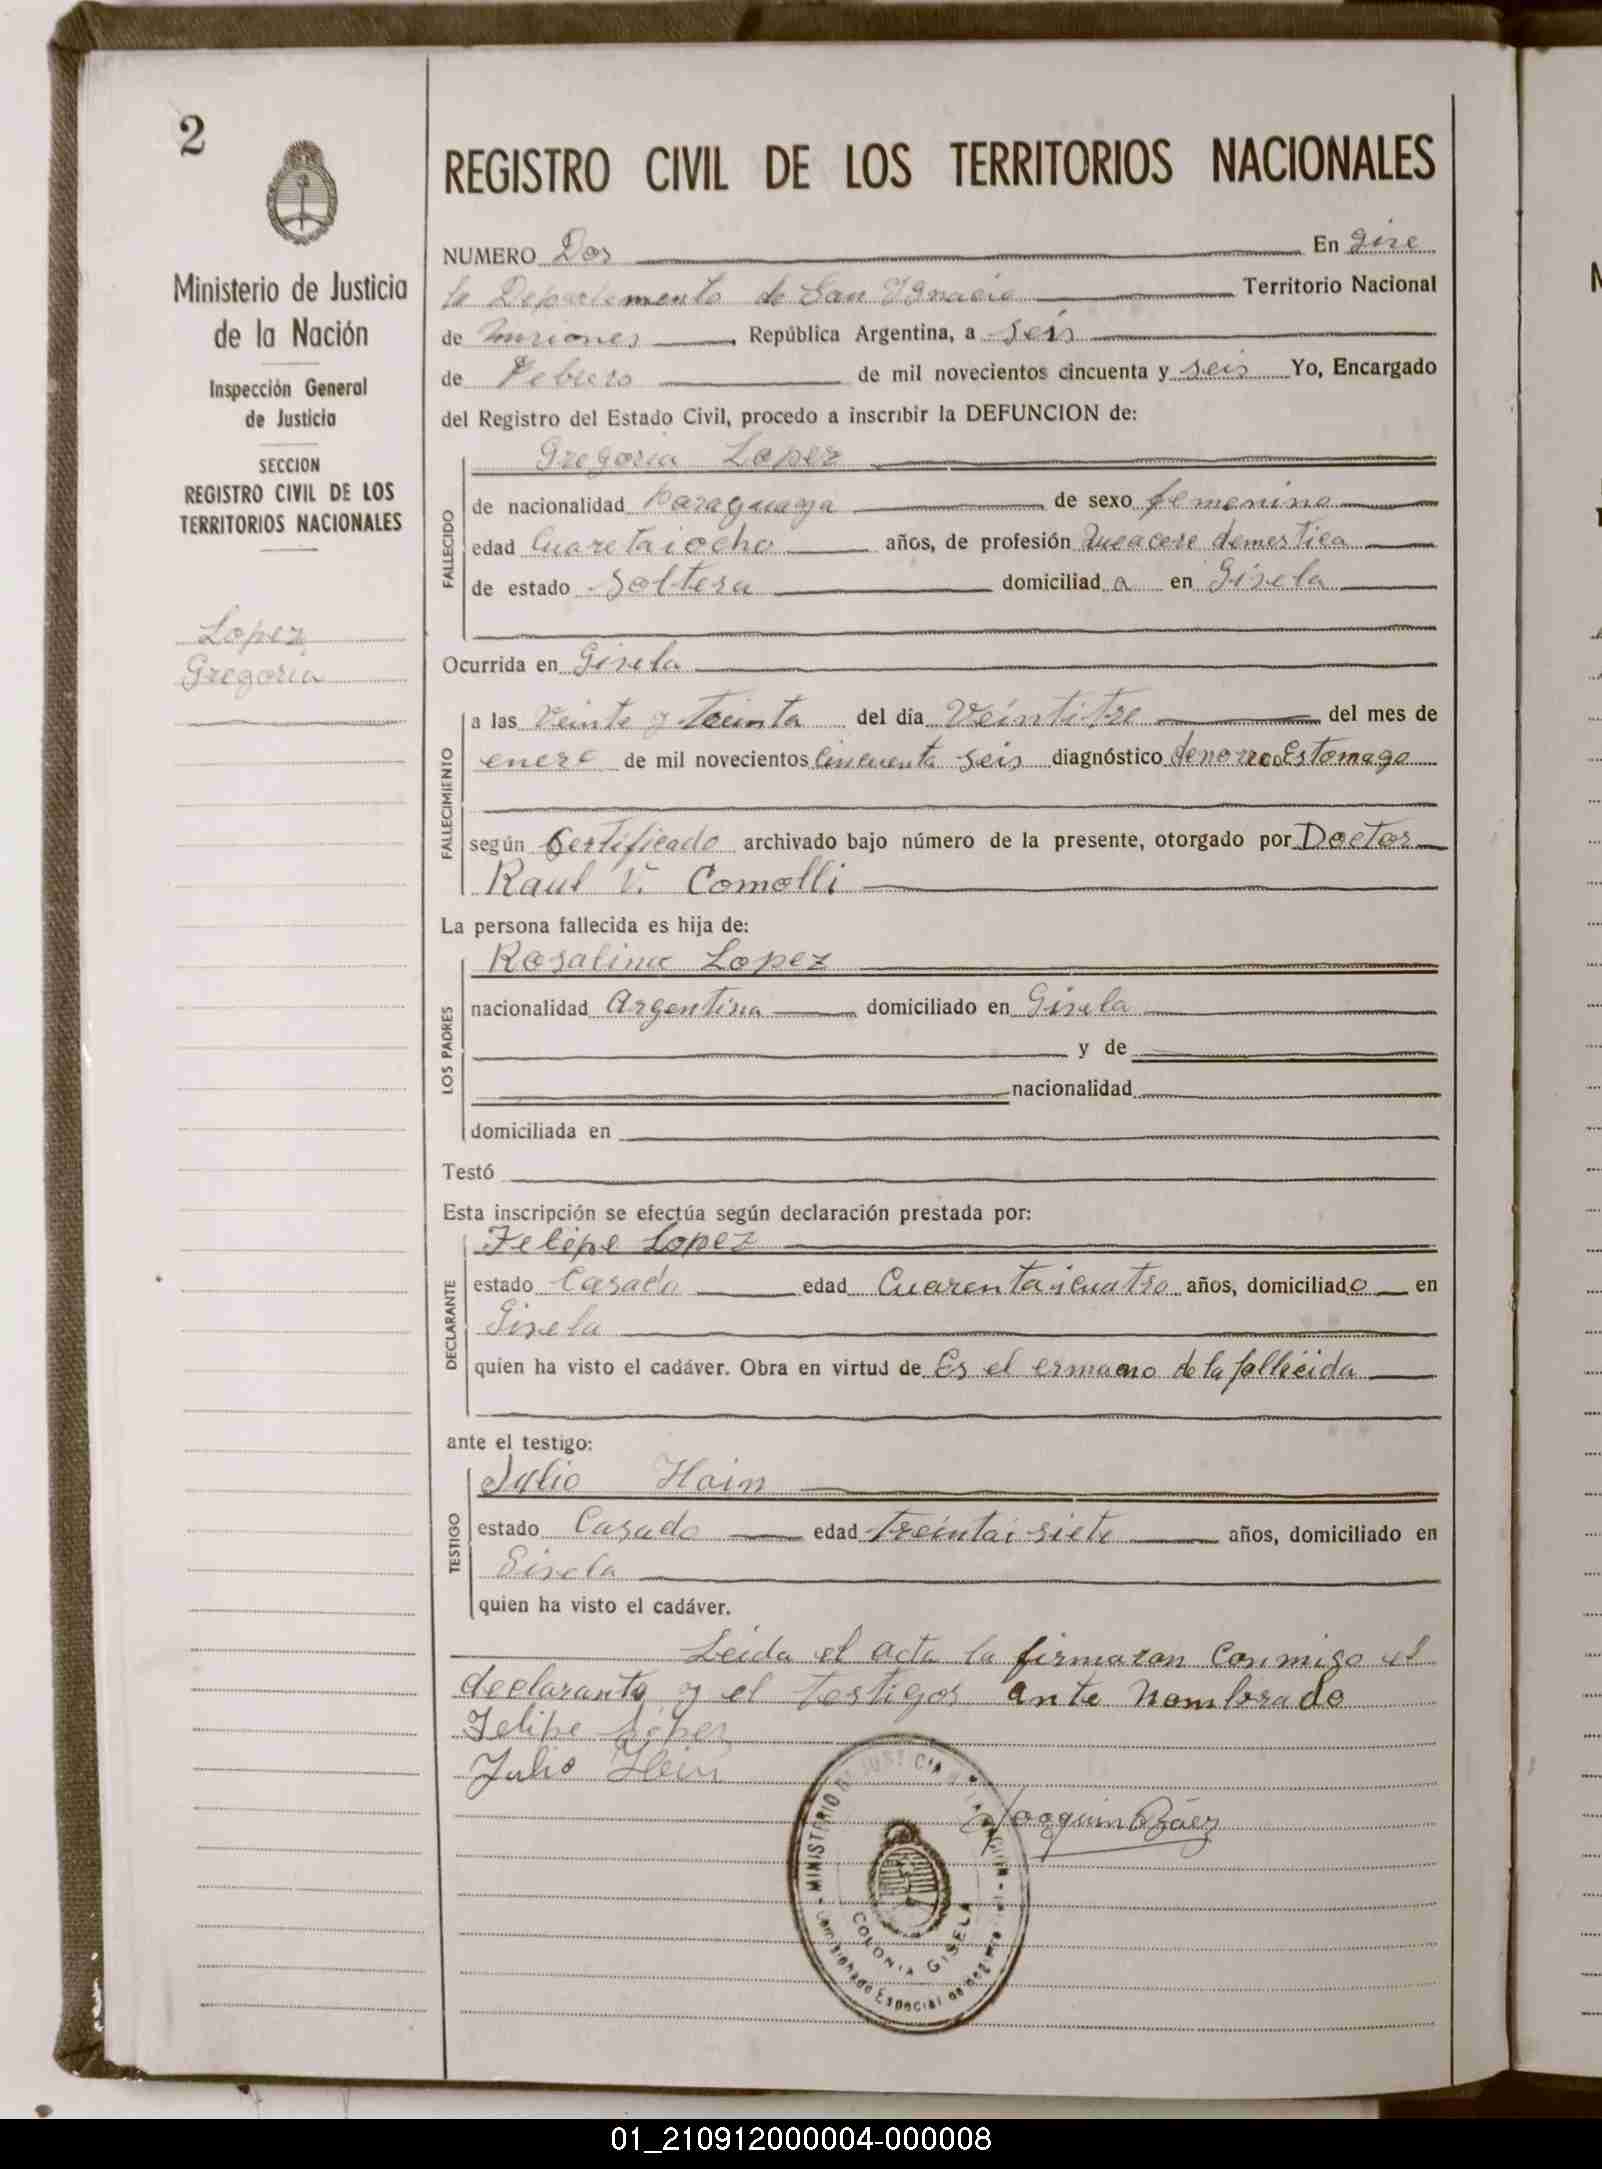 2
REGISTRO CIVIL DE LOS TERRITORIOS NACIONALES
Ministerio de Justicia
de la Nación
Inspección General
de Justicia
SECCION
REGISTRO CIVIL DE LOS
TERRITORIOS NACIONALES
Lopez
Gregoria
NUMERO Dos En Gise
la Departemento de San Ygnacio Territorio Nacional
de Misiones República Argentina, a seis
de Febrero de mil novecientos cincuenta y seis Yo, Encargado
del Registro del Estado Civil, procedo a inscribir la DEFUNCION de:
FALLECIDO
Gregoria Lopez
de nacionalidad Paraguaya de sexo femenino
edad Cuaretaiocho años, de profesión Queacere demestica
de estado Soltera domiciliad a en Gisela
Ocurrida en Gisela
FALLECIMIENTO
a las Veinte y treinta del día Veintitre del mes de
enero de mil novecientos cincuenta seis diagnóstico Estomago
según Certificado archivado bajo número de la presente, otorgado por Doctor
Raul V. Comolli
La persona fallecida es hija de:
LOS PADRES
Rosalina Lopez
nacionalidad Argentina domiciliado en Gisela
y de
nacionalidad
domiciliada en
Testó
Esta inscripción se efectúa según declaración prestada por:
DECLARANTE
Felipe Lopez
estado Casado edad Cuarentaicuatro años, domiciliado en
Gisela
quien ha visto el cadáver. Obra en virtud de Es el ermano de la fallecida
ante el testigo:
TESTIGO
Julio Hain
estado Casado edad treintai siete años, domiciliado en
Gisela
quien ha visto el cadáver.
Leida el acta la firmaran Conmigo el
declarante y el testigos ante nombrado
Felipe López
Julio Hein
Joaquin Báez
MINISTERIO DE JUSTICIA DE LA NACION
COLONIA GISELA
Comisionado Especial de Registro Civil
01_210912000004-000008